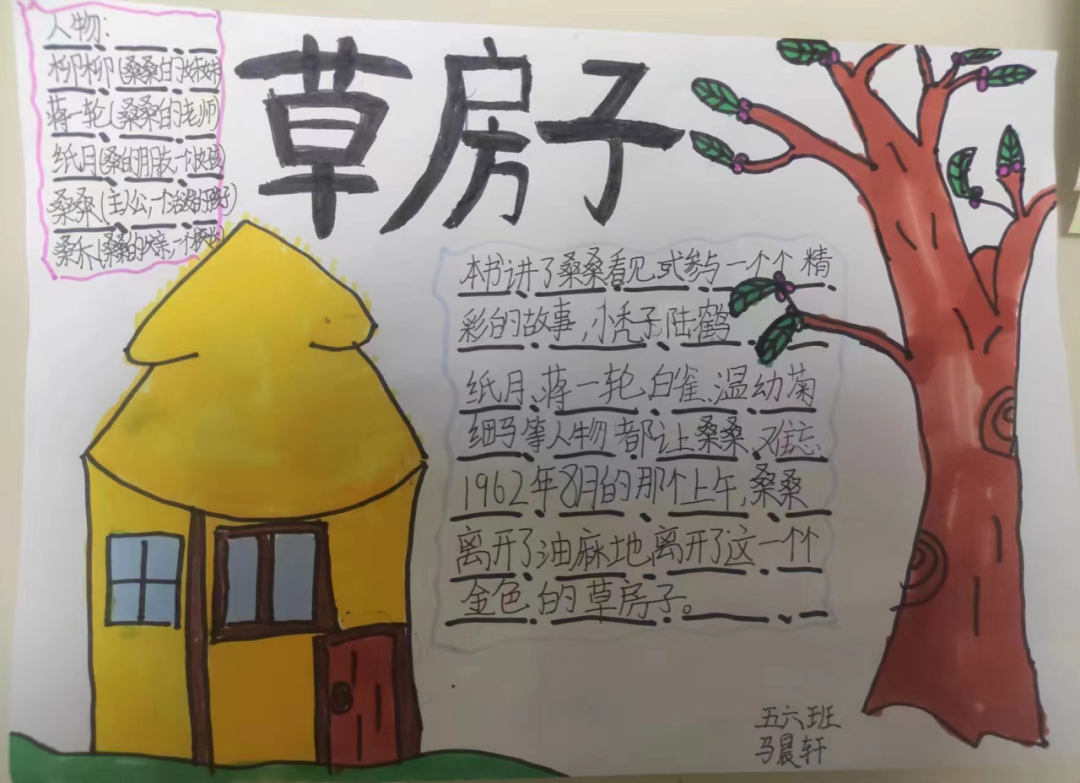 草房子
人物:
柳柳(桑桑的妹妹)
蒋一轮(桑桑的老师)
纸月(桑的朋友一个女孩)
桑桑(主人公,一个活泼的孩子)
桑乔(桑桑的父亲,一个
本书讲了桑桑看见或参与一个个精
彩的故事,小秃子陆鹤
纸月、蒋一轮、白雀、温幼菊
细马等人物都让桑桑难忘
1962年8月的那个上午,桑桑
离开了油麻地,离开了这一个个
金色的草房子。
五六班
马晨轩